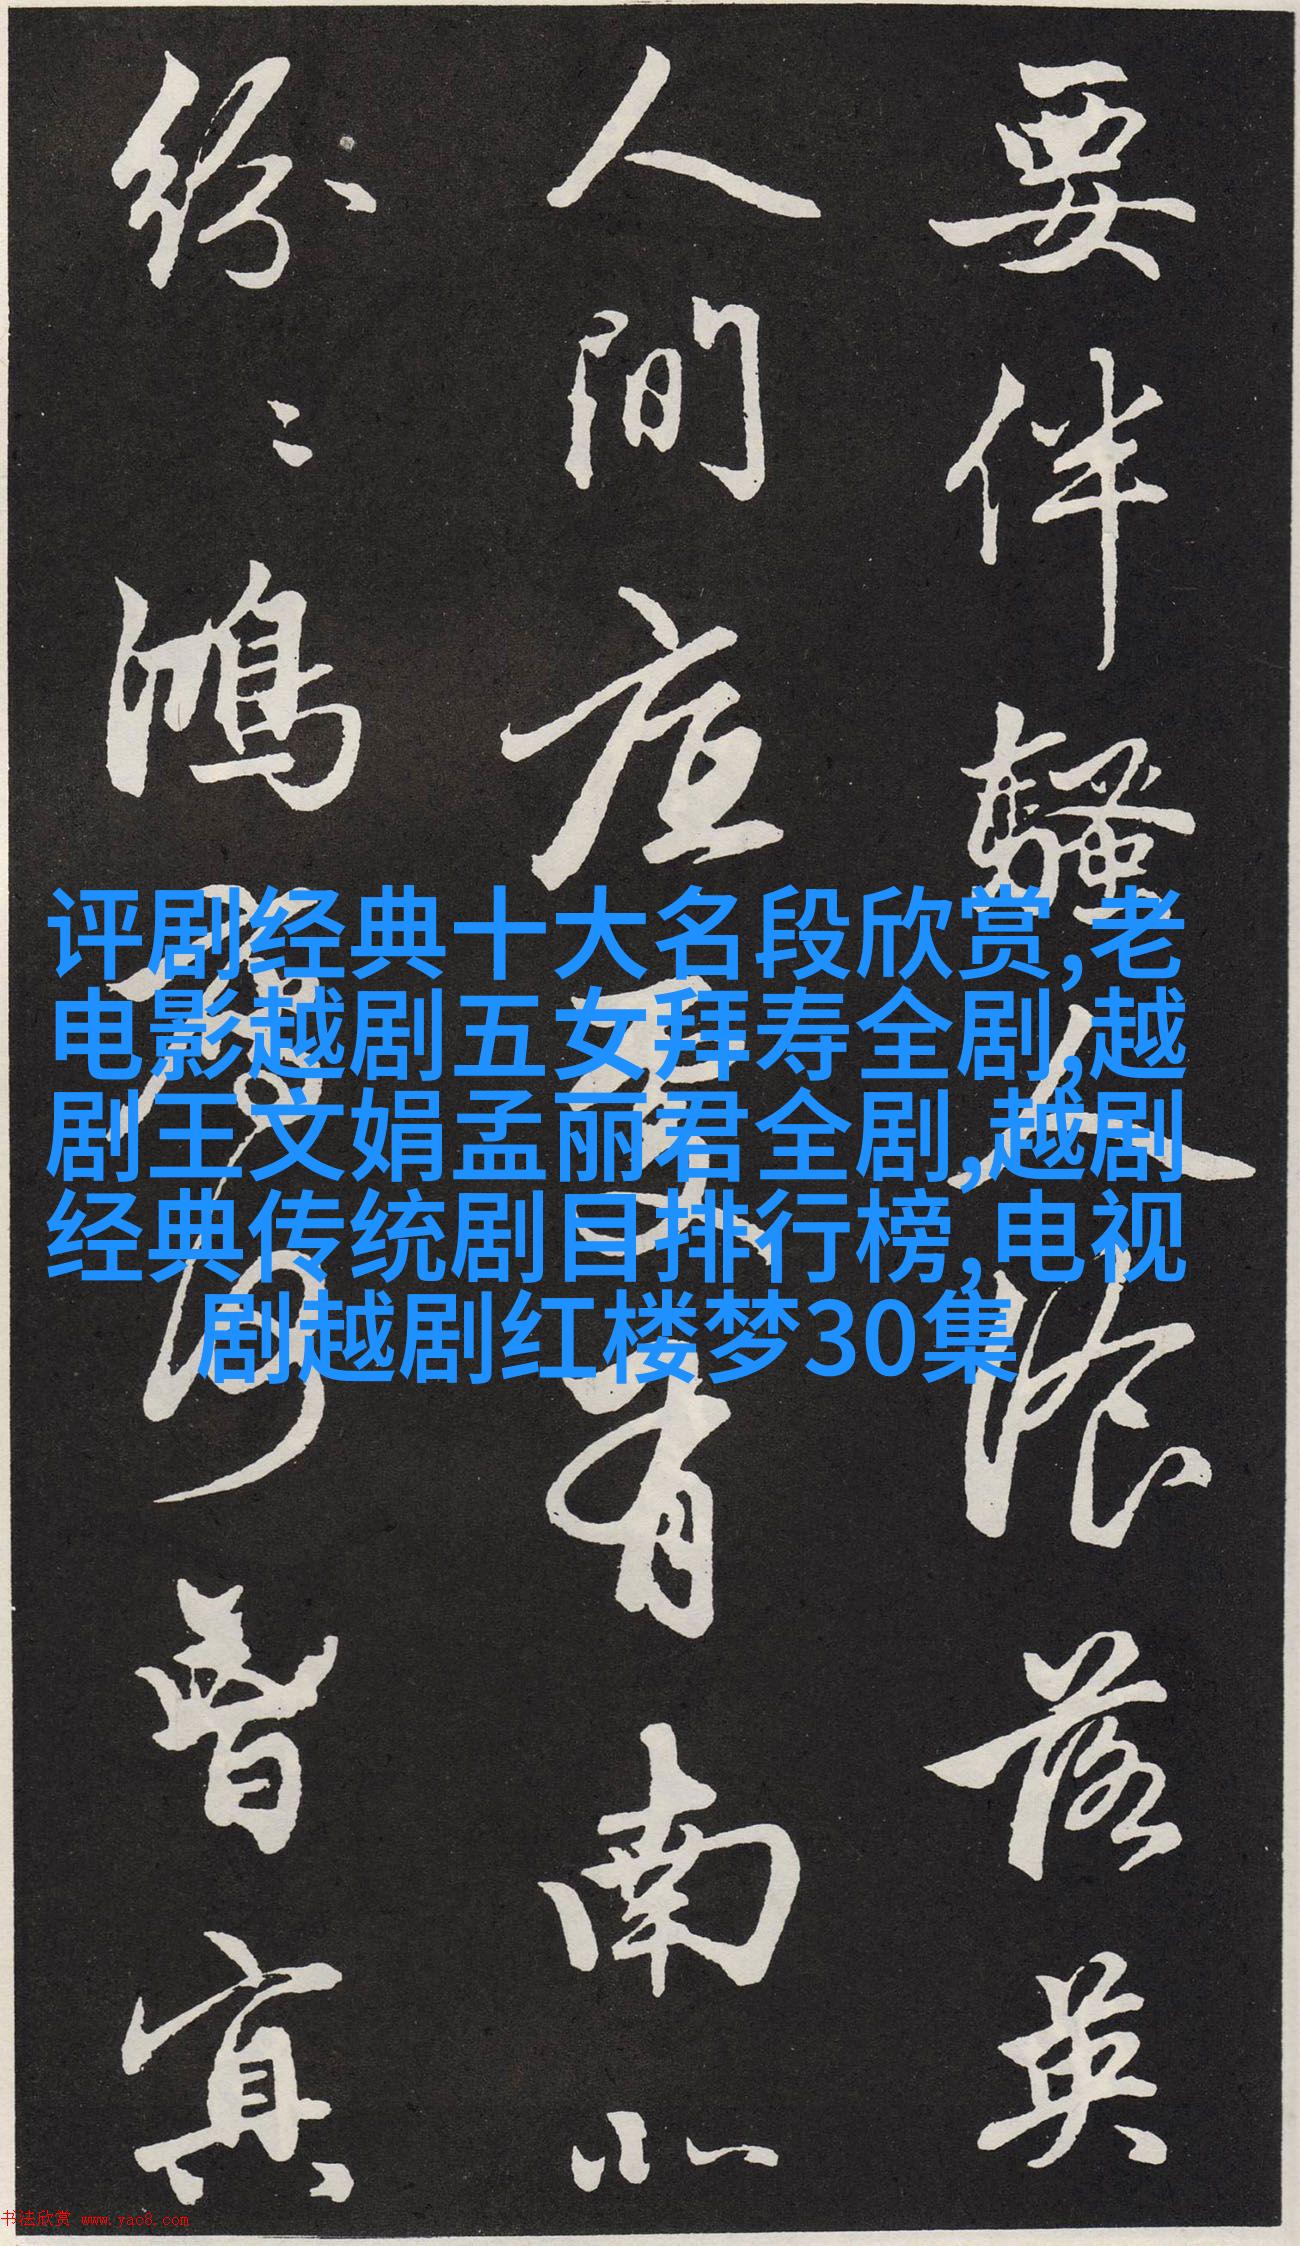 要伴騷人飡落英
人間更有南北
紛〻鴻雁何曾冥
评剧经典十大名段欣赏,老
电影越剧五女拜寿全剧,越
剧王文娟孟丽君全剧,越剧
经典传统剧目排行榜,电视
剧越剧红楼梦30集
书法欣赏 www.yac8.com